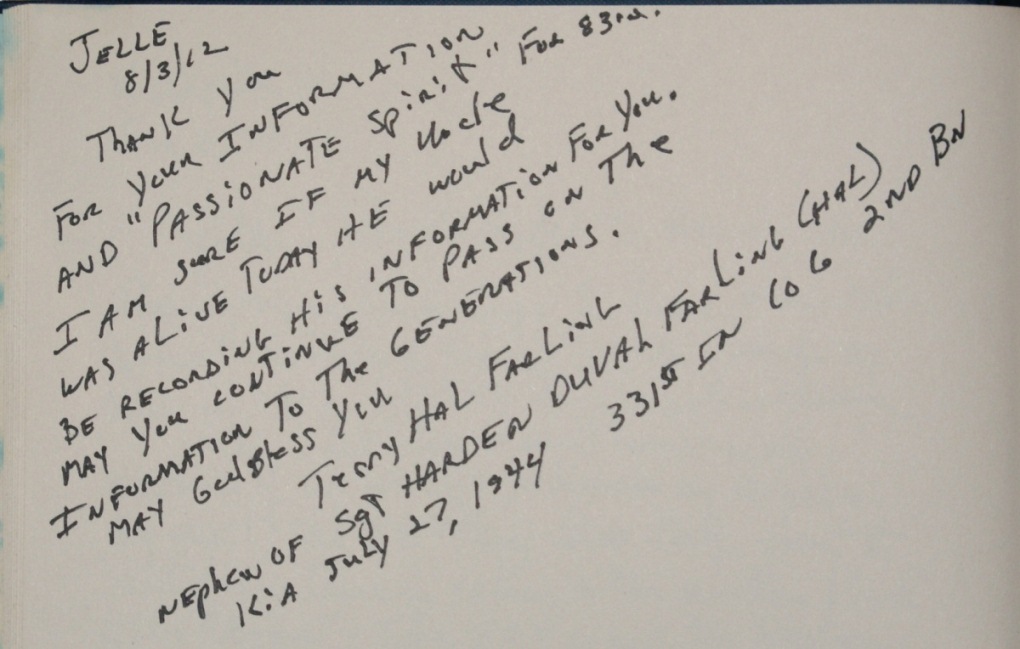 JELLE
8/3/12
THANK YOU
FOR YOUR INFORMATION
AND "PASSIONATE SPIRIT" FOR 83RD.
I AM SURE IF MY UNCLE
WAS ALIVE TODAY HE WOULD
BE RECORDING HIS INFORMATION FOR YOU.
MAY YOU CONTINUE TO PASS ON THE
INFORMATION TO THE GENERATIONS.
MAY GOD BLESS YOU
TERRY HAL FARLING
NEPHEW OF SGT HARDEN DUVAL FARLING (HAL)
KIA JULY 27, 1944 331ST IN CO G 2ND BN